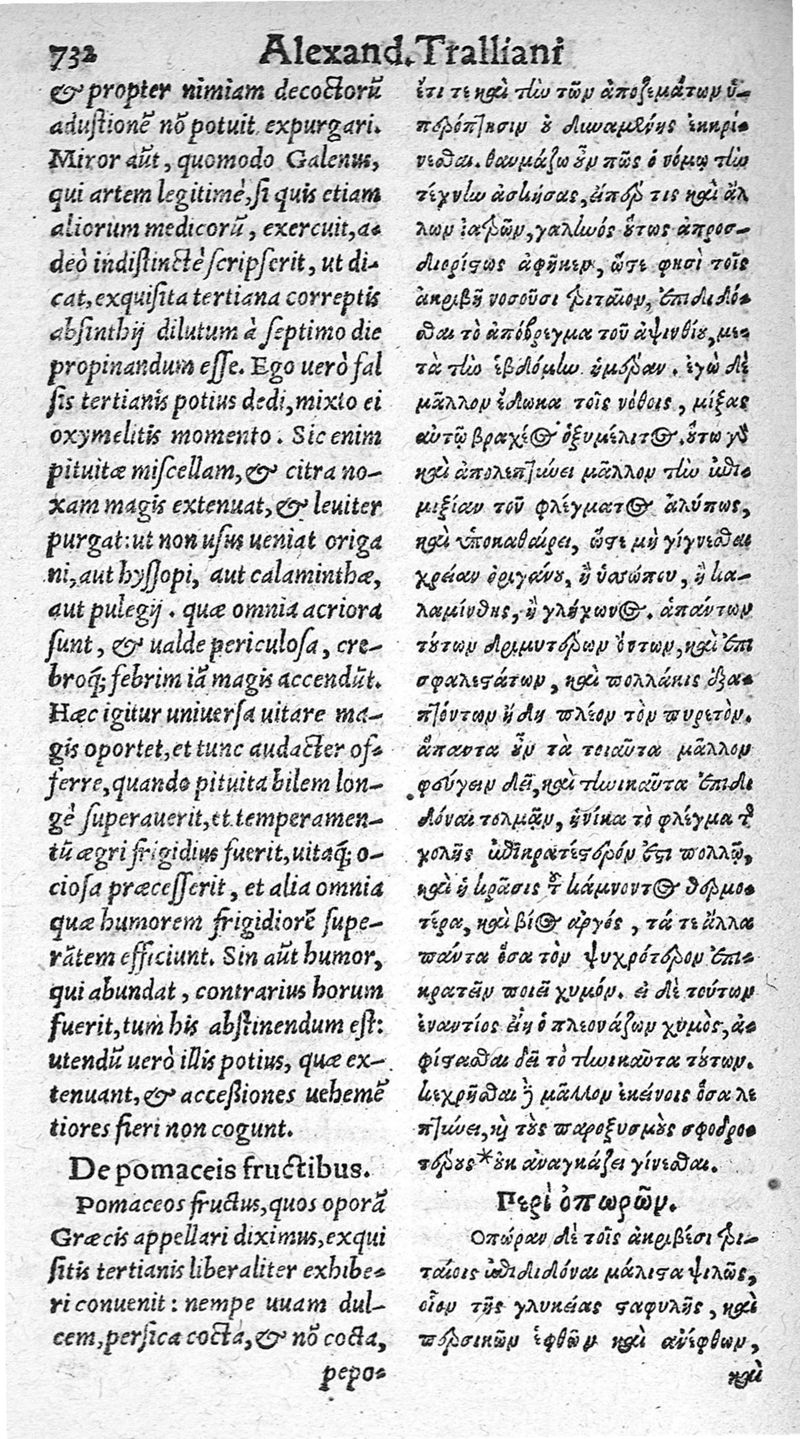 732 Alexand. Tralliani
& propter nimiam decoctorũ
adustionẽ nõ potuit expurgari.
Miror aũt, quomodo Galenus,
qui artem legitimè, si quis etiam
aliorum medicorũ, exercuit, a-
deò indistinctè scripserit, ut di-
cat, exquisita tertiana correptis
absinthij dilutum à septimo die
propinandum esse. Ego uerò fal
sis tertianis potius dedi, mixto ei
oxymelitis momento. Sic enim
pituitæ miscellam, & citra no-
xam magis extenuat, & leuiter
purgat: ut non usus ueniat origa
ni, aut hyssopi, aut calaminthæ,
aut pulegij. quæ omnia acriora
sunt, & ualde periculosa, cre-
broq; febrim iã magis accendũt.
Hæc igitur uniuersa uitare ma-
gis oportet, et tunc audacter of-
ferre, quando pituita bilem lon-
gè superauerit, et temperamen-
tũ ægri frigidius fuerit, uitaq; o-
ciosa præcesserit, et alia omnia
quæ humorem frigidiorẽ supe-
rãtem efficiunt. Sin aũt humor,
qui abundat, contrarius horum
fuerit, tum his abstinendum est:
utendũ uerò illis potius, quæ ex-
tenuant, & accessiones uehemẽ
tiores fieri non cogunt.
De pomaceis fructibus.
Pomaceos fructus, quos oporã
Græcis appellari diximus, exqui
sitis tertianis liberaliter exhibe-
ri conuenit: nempe uuam dul-
cem, persica cocta, & nõ cocta,
pepo-
ἔτι τε καὶ τὴν τῶν ἀποζεμάτων ὑ-
περόπτησιν οὐ δυναμένης ἐκκρί-
νεσθαι. θαυμάζω οὖν πῶς ὁ νόμῳ τὴν
τέχνην ἀσκήσας, εἴπερ τις καὶ ἄλ
λων ἰατρῶν, γαληνός οὕτως ἀπροσ-
διορίστως ἀφῆκεν, ὥστε φησὶ τοῖς
ἀκριβῆ νοσοῦσι τριταῖον, ἐπιδιδό-
σθαι τὸ ἀπόβρεγμα τοῦ ἀψινθίου, με-
τὰ τὴν ἑβδόμην ἡμέραν. ἐγὼ δὲ
μᾶλλον ἔδωκα τοῖς νόθοις, μίξας
αὐτῷ βραχέος ὀξυμέλιτος. οὕτω γὰρ
καὶ ἀπολεπτύνει μᾶλλον τὴν ἐπι-
μιξίαν τοῦ φλέγματος ἀλύπως,
καὶ ὑποκαθαίρει, ὥστε μὴ γίγνεσθαι
χρείαν ὀριγάνου, ἢ ὑσσώπου, ἢ κα-
λαμίνθης, ἢ γλήχωνος. ἁπάντων
τούτων δριμυτέρων ὄντων, καὶ ἐπι
σφαλεστάτων, καὶ πολλάκις ἐξα-
πτόντων ἤδη πλέον τὸν πυρετὸν.
ἅπαντα οὖν τὰ τοιαῦτα μᾶλλον
φεύγειν δεῖ, καὶ τηνικαῦτα ἐπιδι
δόναι τολμᾷν, ἡνίκα τὸ φλέγμα τῆς
χολῆς ἐπικρατέστερόν ἐστι πολλῷ,
καὶ ἡ κρᾶσις τοῦ κάμνοντος θερμο-
τέρα, καὶ βίος ἀργός, τά τε ἄλλα
πάντα ὅσα τὸν ψυχρότερον ἐπι-
κρατεῖν ποιεῖ χυμόν. εἰ δὲ τούτων
ἐναντίος εἴη ὁ πλεονάζων χυμὸς, ἀ-
φίστασθαι δεῖ τὸ τηνικαῦτα τούτων.
κεχρῆσθαι δὲ μᾶλλον ἐκείνοις ὅσα λε
πτύνει, καὶ τοὺς παροξυσμοὺς σφοδρο-
τέρους* οὐκ ἀναγκάζει γίνεσθαι.
Περὶ ὀπωρῶν.
Οπώραν δὲ τοῖς ἀκριβέσι τρι-
ταίοις ἐπιδιδόναι μάλιστα ψιλῶς,
οἷον τῆς γλυκείας σταφυλῆς, καὶ
περσικῶν ἑφθῶν καὶ ἀνέφθων,
καὶ